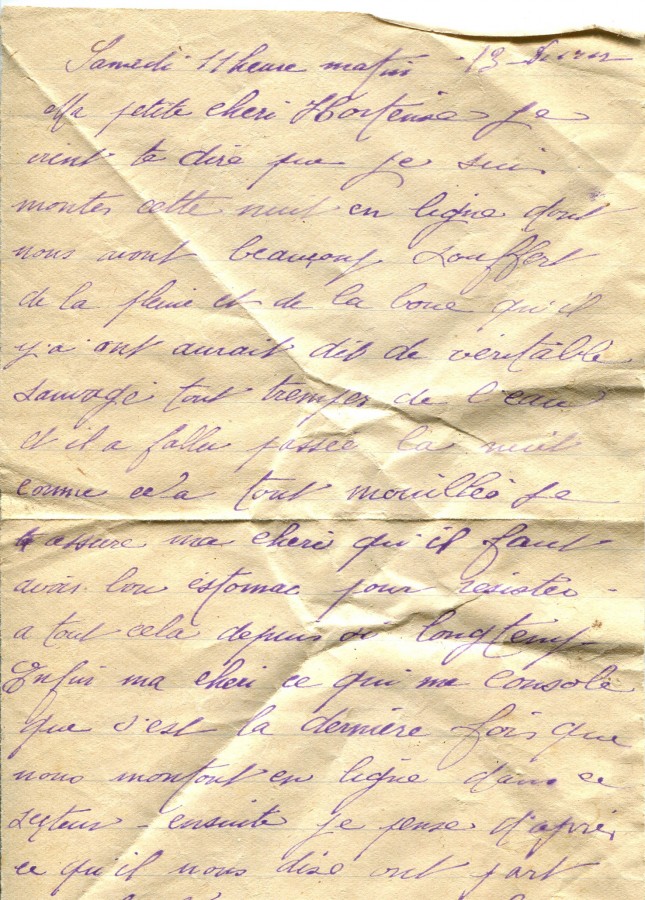 Samedi 11 heure matin - 13
Ma petite cheri Hortense je
vint te dire que je suis
monter cette nuit en ligne dont
nous avont beaucoup souffert
de la pluie et de la boue qu'il
y'a ont aurait dit de véritable
sauvage tout tremper de l'eau
et il a fallu passée la nuit
comme cela tout mouillés Je
t assure ma cheri qu'il faut
avoir bon estomac pour résister -
a tout cela depuis si longtemp
Enfin ma cheri ce qui me console
que s'est la dernière fois que
nous montont en ligne dans ce
secteur - ensuite je pense d'après
ce qu'il nous dise ont part